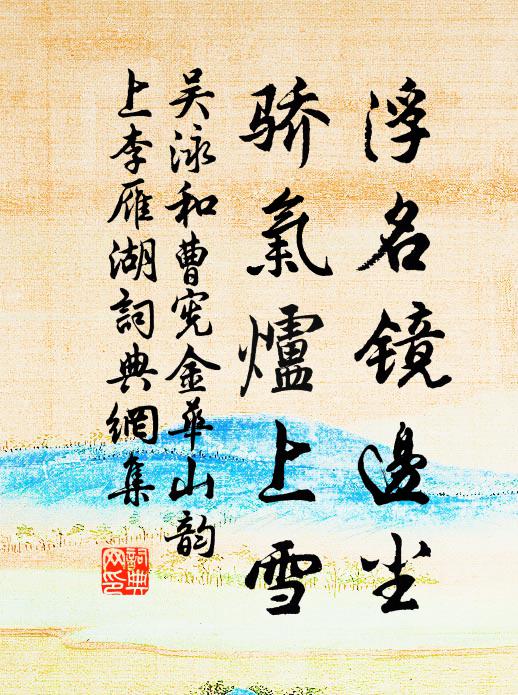 浮名镜邊尘
骄氣爐上雪
吴泳和曹宪金华山韵
上李雁湖詞典網集
詞典网印